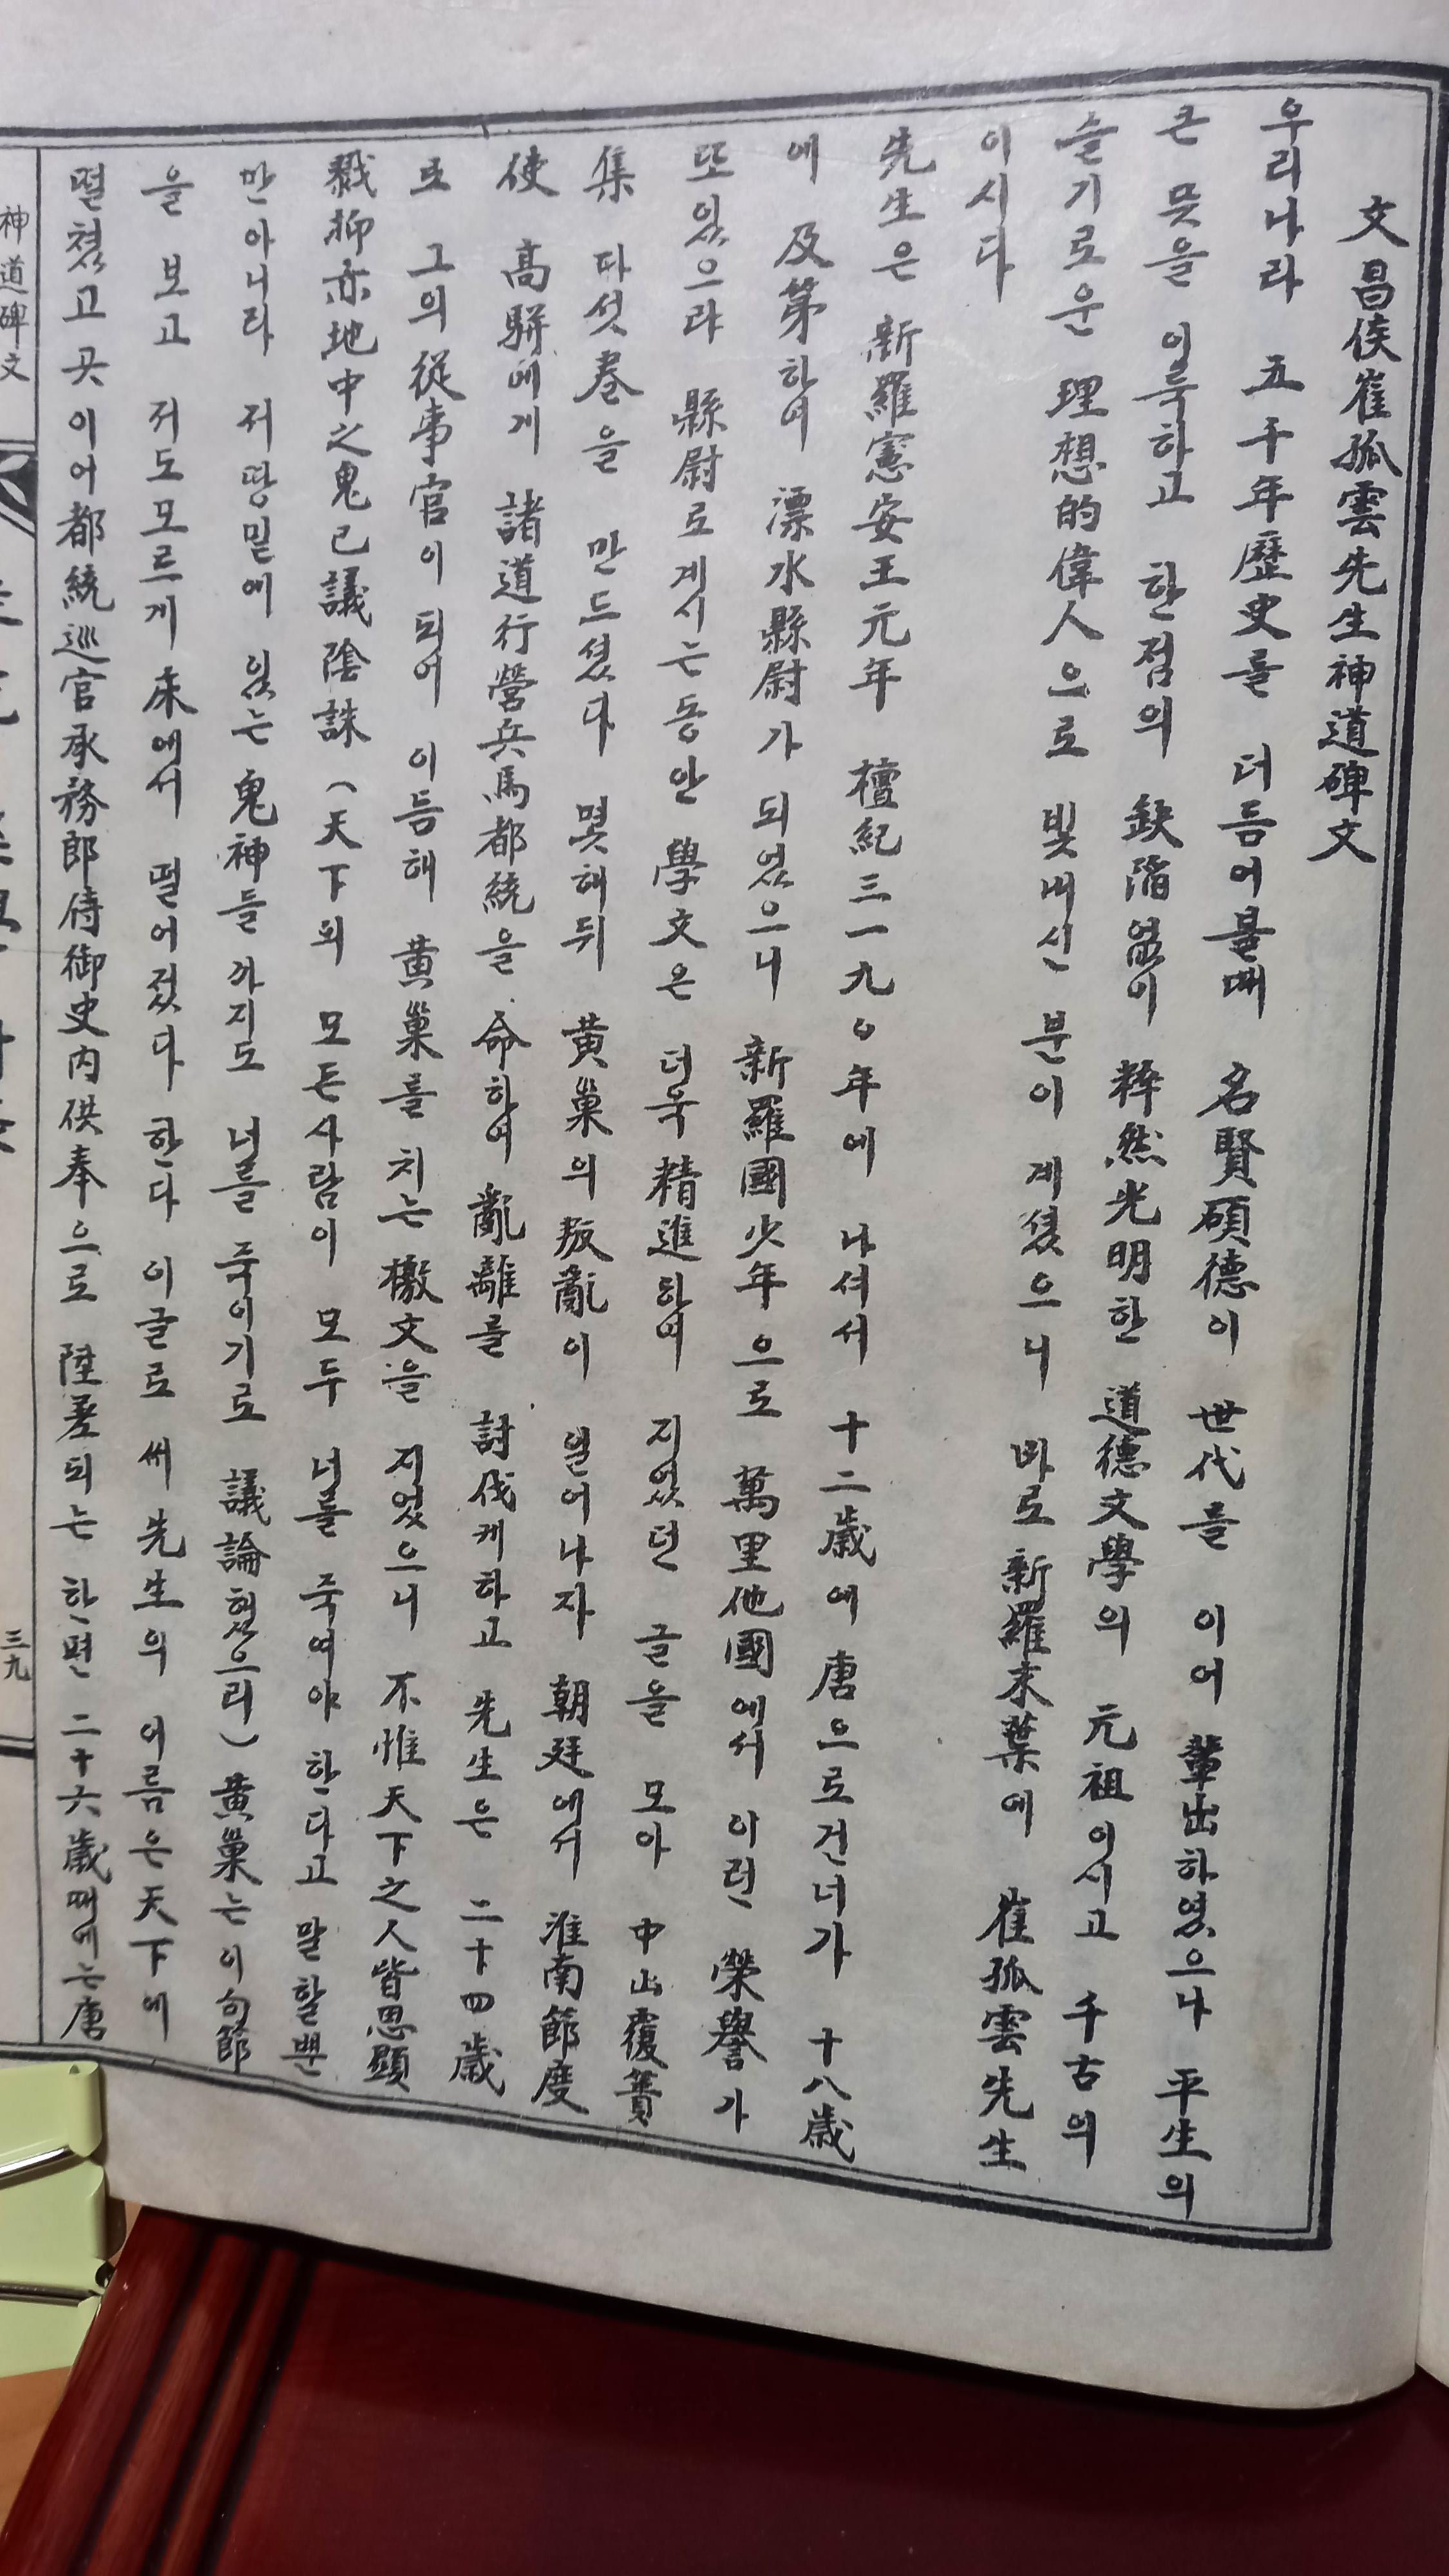 文昌侯崔孤雲先生神道碑文
우리나라 五千年歷史를 더듬어볼때 名賢碩德이 世代를 이어 輩出하였으나 平生의
큰 뜻을 이룩하고 한점의 缺陷없이 粹然光明한 道德文學의 元祖이시고 千古의
슬기로운 理想的偉人으로 빛내신 분이 계셨으니 바로 新羅末葉에 崔孤雲先生
이시다
先生은 新羅憲安王元年 檀紀三一九○年에 나셔서 十二歲에 唐으로건너가 十八歲
에 及第하여 漂水縣尉가 되었으니 新羅國少年으로 萬里他國에서 이런 榮譽가
또있으랴 縣尉로계시는동안 學文은 더욱精進하여 지었던 글을 모아 中山覆簣
集 다섯卷을 만드셨다 몇해뒤 黃巢의叛亂이 일어나자 朝廷에서 淮南節度
使 高騈에게 諸道行營兵馬都統을 命하여 亂離를 討伐케하고 先生은 二十四歲
로 그의從事官이되여 이듬해 黃巢를치는檄文을 지었으니 不惟天下之人皆思顯
戮抑亦地中之鬼已議陰誅(天下의 모든사람이 모두 너를 죽여야 한다고 말할뿐
만아니라 저땅밑에 있는鬼神들까지도 너를 죽이기로 議論했으리)黃巢는이句節
을 보고 저도모르게 床에서 떨어졌다 한다 이글로써先生의 이름은天下에
떨쳤고곳이어都統巡官承務郎侍御史內供奉으로 陞差되는 한편 二十六歲때에는唐
神道碑文
三九